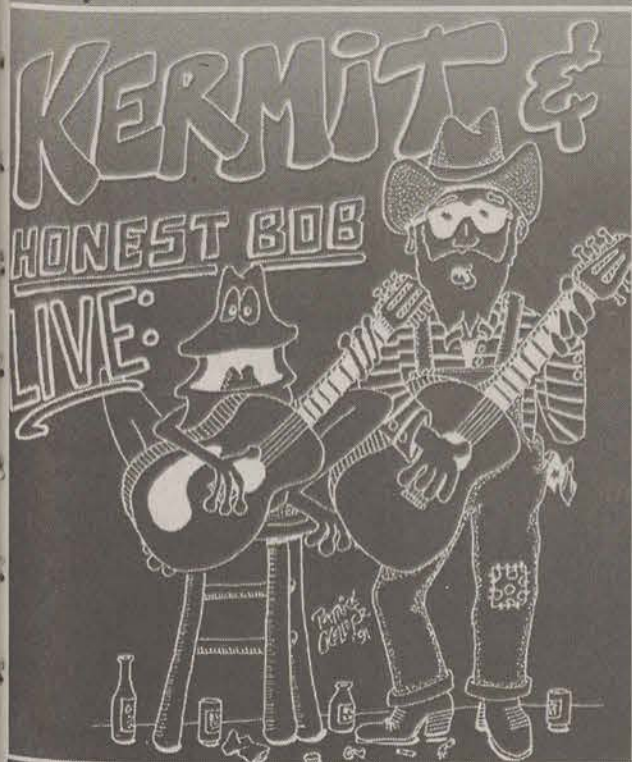 KERMiT &
HONEST BOB
LIVE: